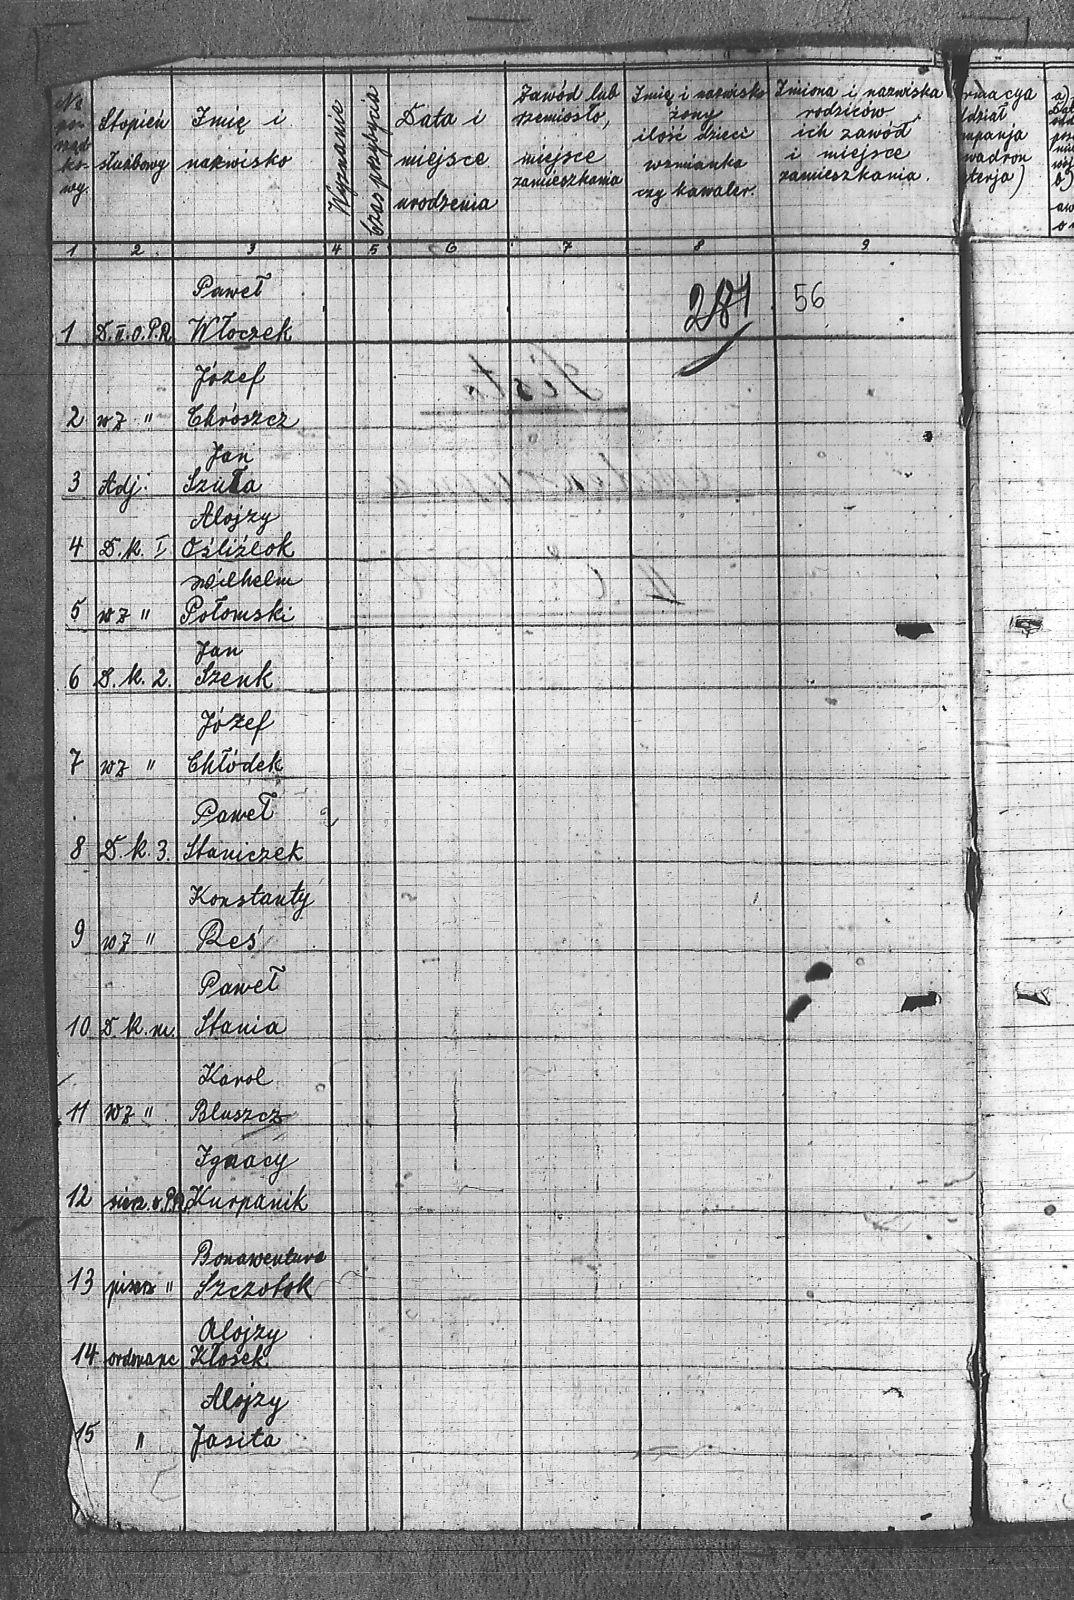 No
po-
rząd
ko-
wy.
Stopień
służbowy
Imię i
nazwisko
Wyznanie
Czas przybycia
Data i
miejsce
urodzenia
Zawód lub
rzemiosło,
miejsce
zamieszkania
Imię i nazwisko
żony
ilość dzieci
wzmianka
czy kawaler.
Imiona i nazwiska
rodziców,
ich zawód
i miejsce
zamieszkania.
rmacya
ddział
mpanja
wadron
terja)
a)
b)
1 2 3 4 5 6 7 8 9
281 56
Paweł
1 D.II.O.P.R. Włoczek
Józef
2 wz " Chrószcz
Jan
3 Adj. Szuła
Alojzy
4 D.k. I Oślizlok
Wilhelm
5 wz " Połomski
Jan
6 D.k. 2. Szenk
Józef
7 wz " Chłódek
Paweł
8 D.k. 3. Staniczek
Konstanty
9 wz " Reś
Paweł
10 D.k.m. Stania
Karol
11 wz " Bluszcz
Ignacy
12 sierz. Kurpanik
Bonawentura
13 pisarz " Szczotok
Alojzy
14 ordonanc Kłosek.
Alojzy
15 " Jasita